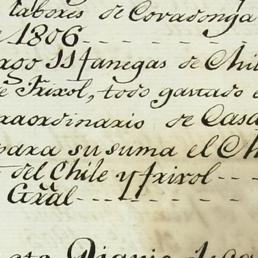 labores de Covadonga
1806
11 fanegas de Chil
e Frixol, todo gastado e
raordinario de Casa
para su suma el Ch
del Chile y frixol
Gral
Diario de ga